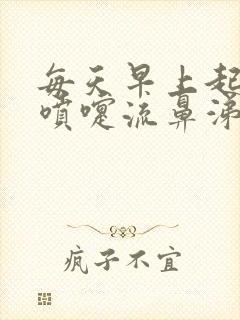 每天早上起
喷嚏流鼻涕
疯子不宜